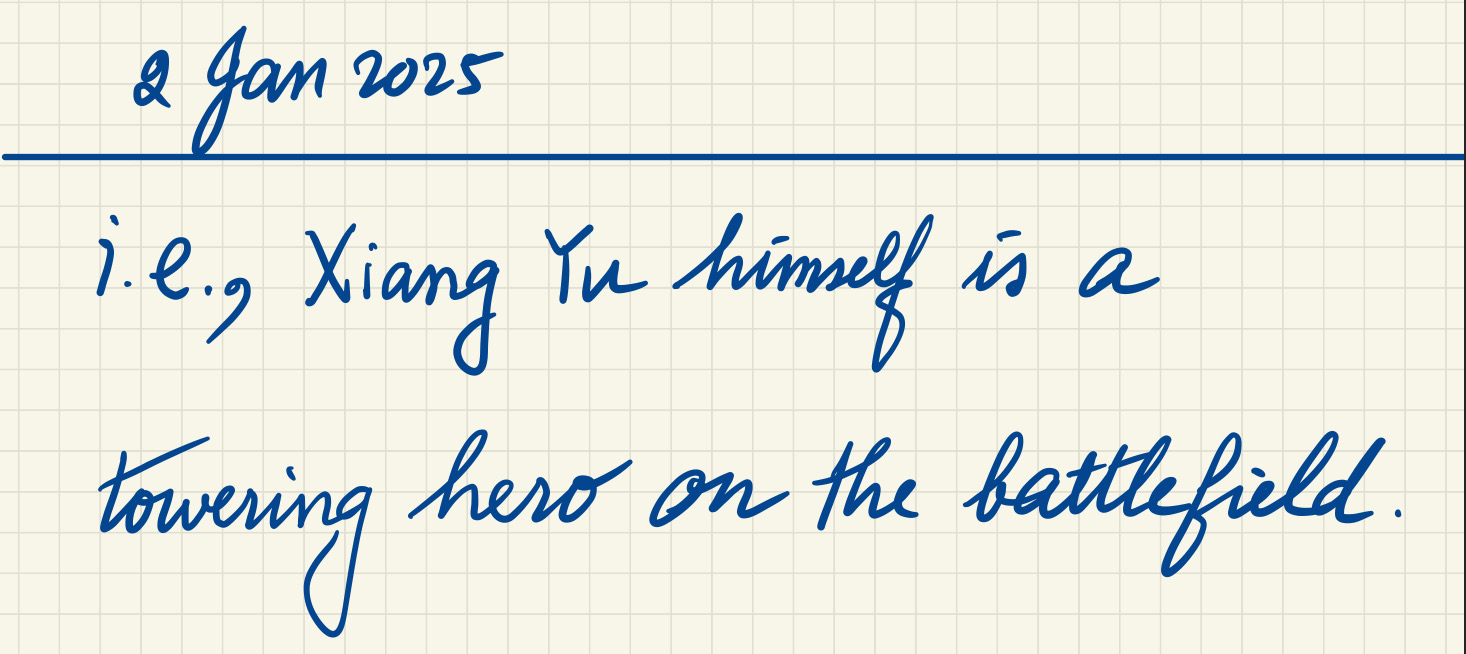 2 Jan 2025
i.e., Xiang Yu himself is a
towering hero on the battlefield.